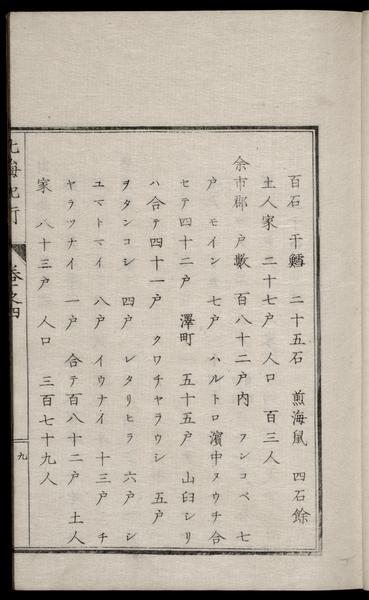 百石 干鱈 二十五石 煎海鼠 四石餘
土人家 二十七戸 人口 百三人
余市郡 戸數 百八十二戸内 フンコベ 七
戸 モイン 七戸 ハルトロ濱中ヌウチ合
セテ四十二戸 澤町 五十五戸 山臼シリ
ハ 合テ四十一戸 クワチヤラウシ 五戸
ヲタンコシ 四戸 レタリヒラ 六戸 シ
ユマトマイ 八戸 イウナイ 十三戸 チ
ヤラツナイ 一戸 合テ百八十二戸 土人
家 八十三戸 人口 三百七十九人
北海紀行 卷之四
九